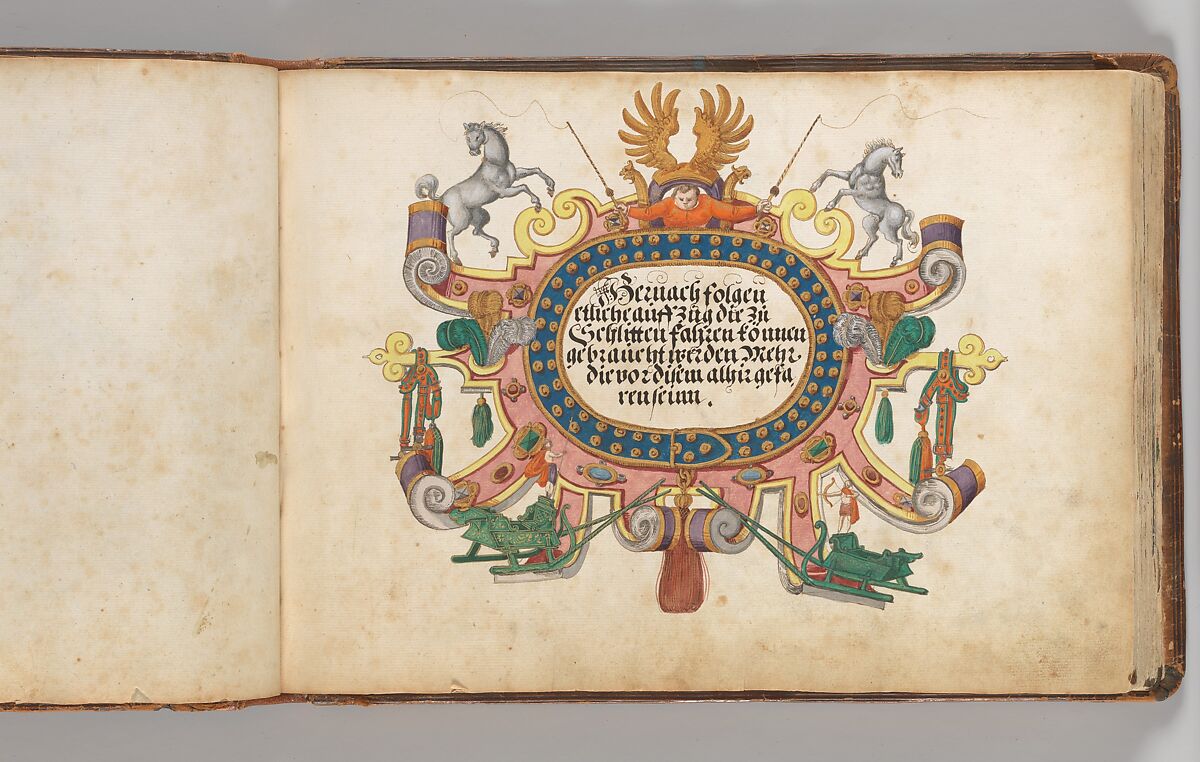 Hernach folgen
etliche auffzüg die zu
Schlitten fahren können
gebraucht werden Mehr-
die vor disem alhir gefa
ren seinn.